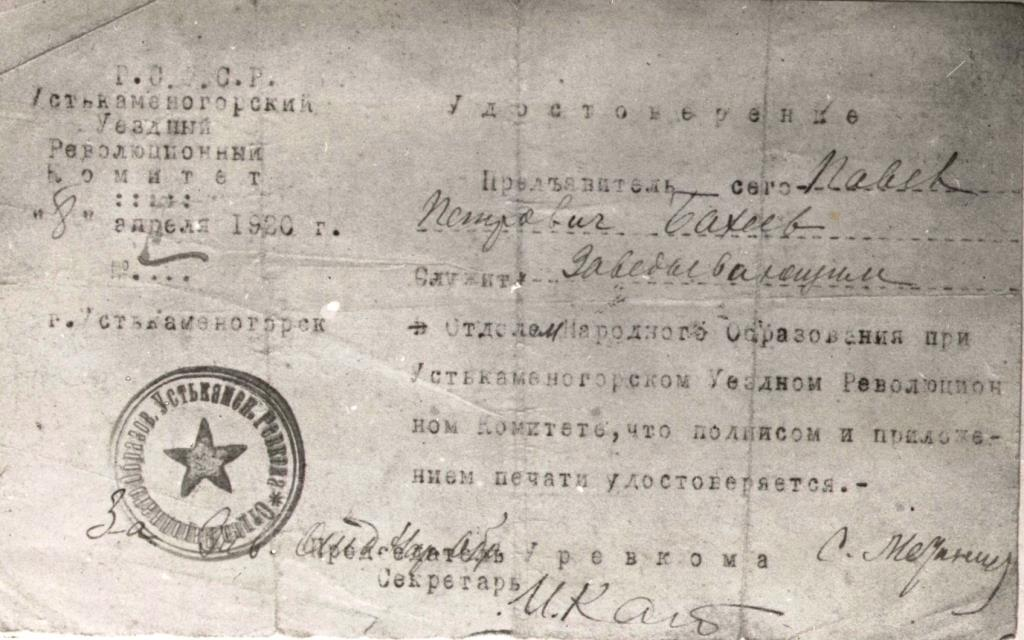 Р.С.Ф.С.Р.
Устькаменогорский
Уездный
Революционный
Комитет
"8" апреля 1920 г.
№....
г.Устькаменогорск
Удостоверение
Предъявитель сего
Петрович Бахеев
Служит Заведывающим
в Отделом Народного Образования при
Устькаменогорском Уездном Революцион
ном Комитете, что подписом и приложе-
нием печати удостоверяется.-
Устькамен. Ревкома * Отдел
За Зав.
Председатель Уревкома С.
Секретарь